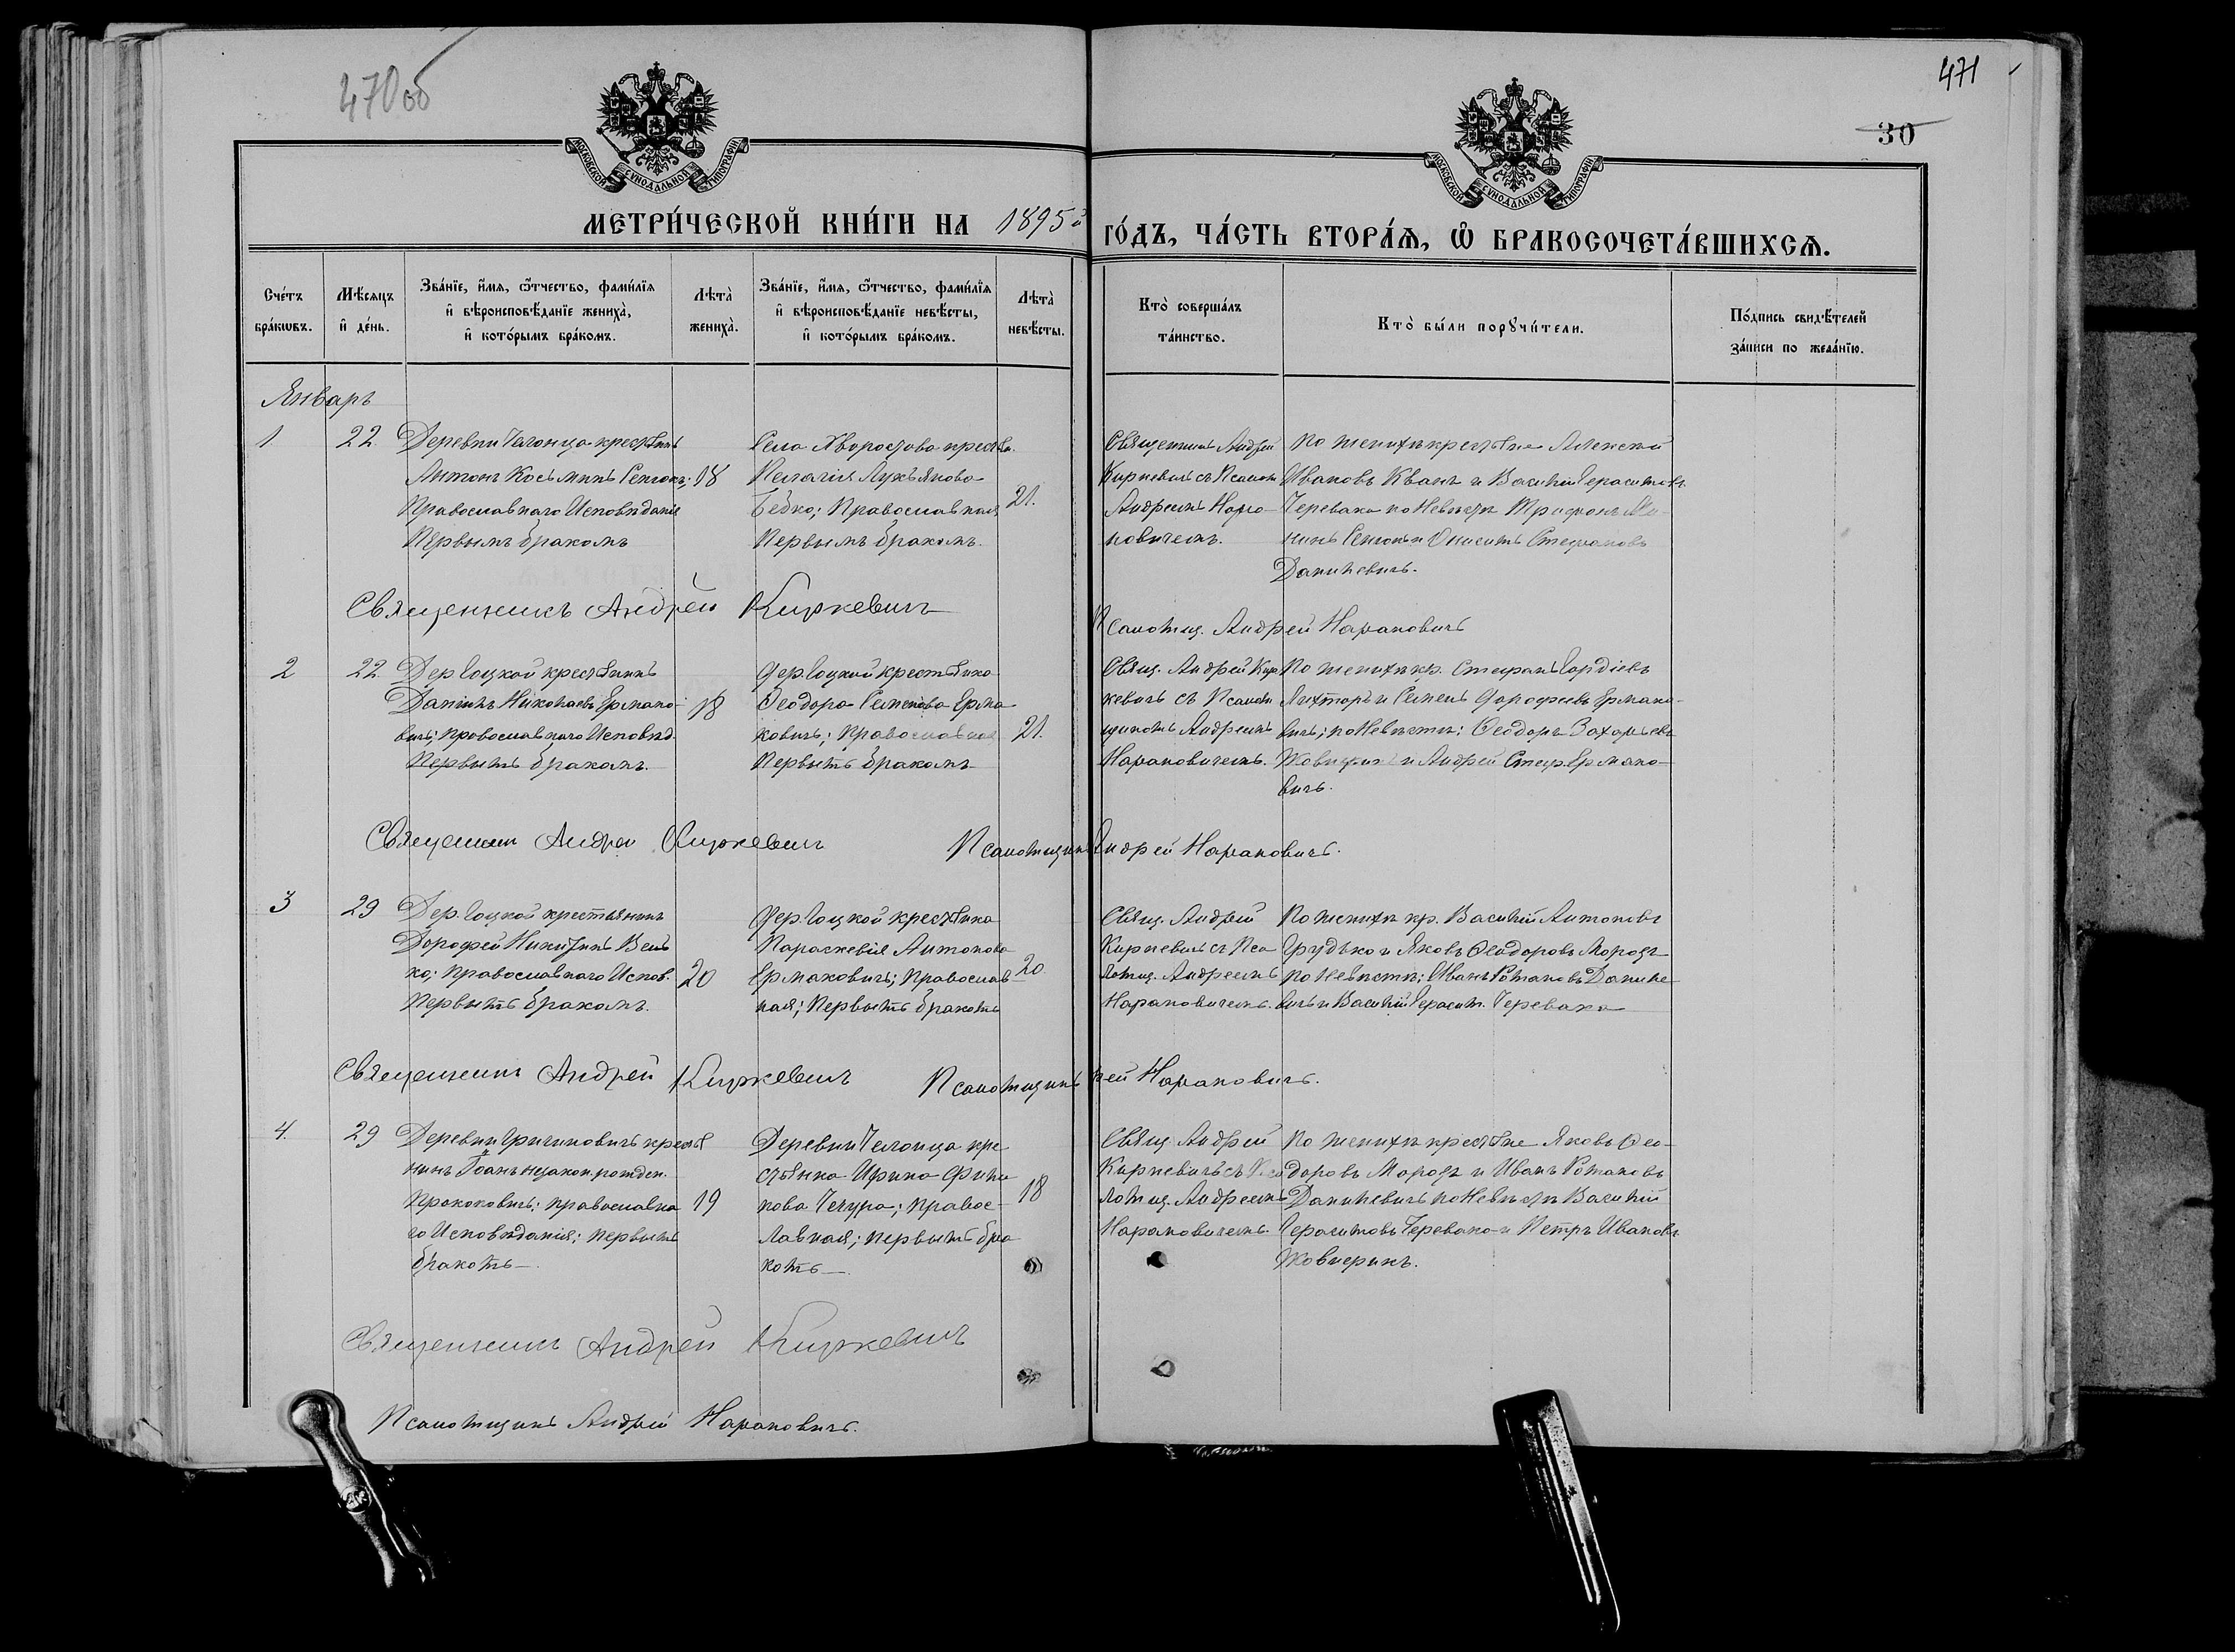 470об
471
30
МОСКОВСКОЙ СѴНОДАЛЬНОЙ ТИПОГРАФІИ
МОСКОВСКОЙ СѴНОДАЛЬНОЙ ТИПОГРАФІИ
МЕТРИ́ЧЕСКОЙ КНИ́ГИ НА 1895й
ГО́ДЪ, ЧА́СТЬ ВТОРА́Ѧ, Ѽ БРАКОСОЧЕТА́ВШИХСѦ.
Сче́тъ бра́кѡвъ.
Мѣ́сяцъ и҆ де́нь.
Зва́нїе, и҆́мѧ, ѻ҆́тчество, фами́лїѧ и҆ вѣроисповѣ́данїе жениха̀, и҆ кото́рымъ бра́комъ.
Лѣта̀ жениха̀.
Зва́нїе, и҆́мѧ, ѻ҆́тчество, фами́лїѧ и҆ вѣроисповѣ́данїе невѣ́сты, и҆ кото́рымъ бра́комъ.
Лѣта̀ невѣ́сты.
Кто̀ соверша́лъ та́инство.
Кто̀ бы́ли порꙋчи́тели.
По́дпись свидѣ́телей за́писи по жела́нїю.
Январь
1
22.
Деревни крестьянинъ
Антонъ Косьминъ
Православнаго Исповѣданія
Первымъ бракомъ
18
Села Хворостова крестьян.
Пелагія Лукьянова
Бедко; Православная
Первымъ бракомъ.
21.
Священникъ Андрей
Киркевичъ съ Псалом
Андреемъ Наро-
новичемъ.
По женихѣ крестьяне Алексѣй
Ивановъ Квань и Василій Герасимовъ
Черевако по Невѣстѣ Трифонъ
и Онисимъ Стефановъ
Даниневичъ.
Священникъ Андрей Киркевичъ
Псаломщ. Андрей Нарановичъ
2
22.
Дер. Гоцкой крестьянинъ
Даніилъ Николаевъ Ермако-
вичъ; православнаго Исповѣд.
Первымъ бракомъ.
18
дер. Гоцкой крестьянка
Ѳеодора Семенова Ерма
ковичъ; Православная
Первымъ бракомъ
21.
Свящ. Андрей Кир
кевичъ съ Псалом
щикомъ Андреемъ
Нарановичемъ.
По женихѣ кр. Стефанъ Гордіевъ
Лихторъ и Семенъ Дорофеевъ Ермако-
вичъ; по Невѣстѣ: Ѳеодоръ Захарьевъ
и Андрей Стеф. Ермако-
вичъ.
Священникъ Андрей Киркевичъ
Псаломщикъ Андрей Нарановичъ.
3
29
Дер. Гоцкой крестьянинъ
Дорофей Никитинъ Вель
ко; православнаго Испов.
Первымъ бракомъ.
20
Дер. Гоцкой крестьянка
Параскевія Антонова
Ермаковичъ; Православ-
ная; Первымъ бракомъ
20.
Свящ. Андрей
Киркевичъ съ Пса
ломщ. Андреемъ
Нарановичемъ.
По женихѣ кр. Василій Антоновъ
Грудько и Яковъ Ѳеодоровъ Морозъ
по Невѣстѣ: Иванъ РомановъДанине
вичъ и Василій Герасим. Черевако
Священникъ Андрей Киркевичъ
Псаломщикъ рей Нарановичъ.
4.
29
Деревни Гричиновичъ крестья
нинъ Іоанъ незакон. рожден.
Прокоповичъ; православна
го Исповѣданія; первымъ
бракомъ
19
Деревни кре
стьянка Ирина Фили
пова Чечура; Правос-
лавная; первымъ бра
комъ
18
Свящ. Андрей
Киркевичъ съ Пса
ломщ. Андреемъ
Нарановичемъ.
По женихѣ крестьяне Яковъ Ѳео-
доровъ Морозъ и Иванъ Романовъ
Даниневичъ по Невѣстѣ Василій
Герасимовъ Черевако и Петръ Ивановъ
Жовнерикъ.
Священникъ Андрей Киркевичъ
Псаломщикъ Андрей Нарановичъ.